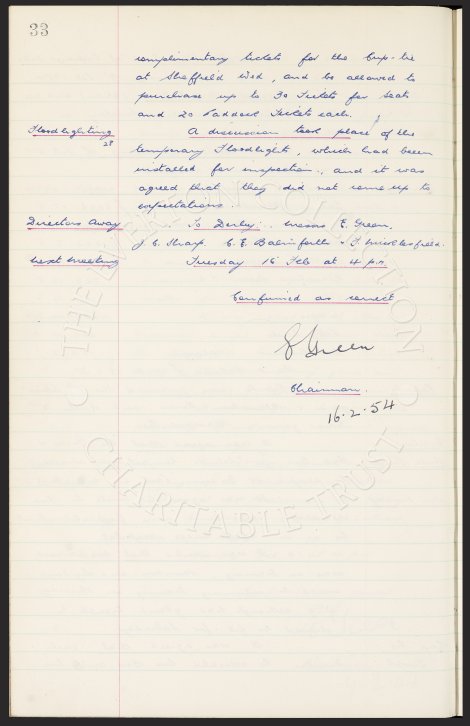 33
complimentary tickets for the Cup-tie
at Sheffield Wed, and be allowed to
purchase up to 30 Tickets for Seats
and 20 Paddock Tickets each.
Floodlighting A discussion took place of the
28
temporary Floodlights, which had been
installed for inspection, and it was
agreed that they did not come up to
expectations.
Directors Away To Derby: Messrs E. Green,
J. E. Sharp. C. E. Balmforth & F.
Next Meeting Tuesday 16 Feb at 4 pm
Confirmed as correct
E Green
Chairman.
16.2.54
THE COLLECTION
CHARITABLE TRUST